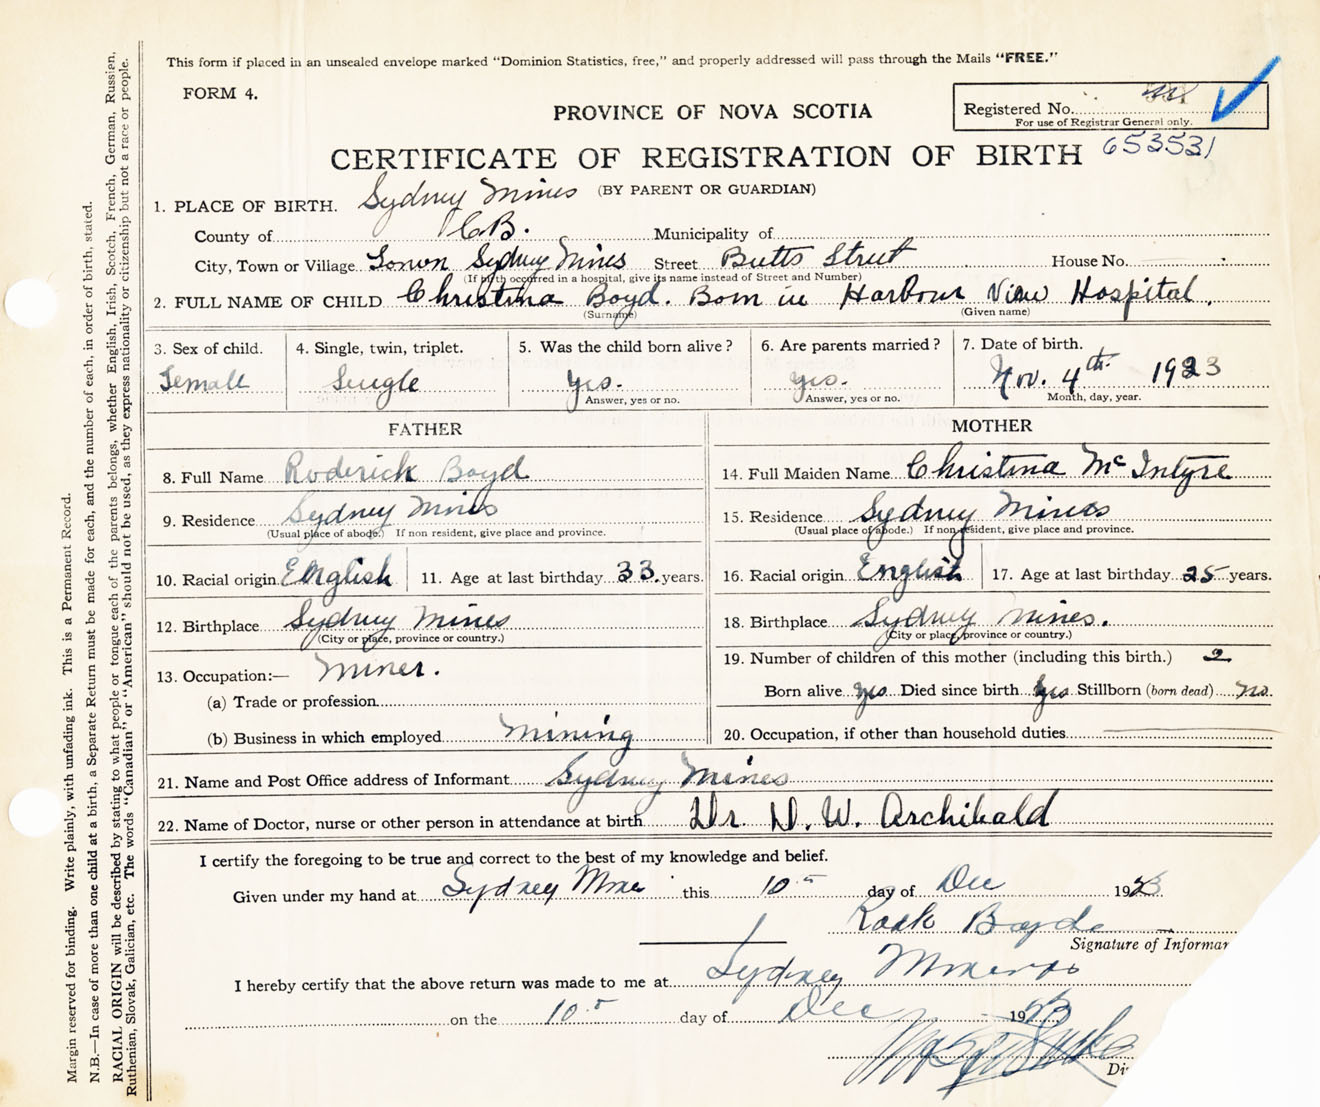 This form if placed in an unsealed envelope marked "Dominion Statistics, free," and properly addressed will pass through the Mails "FREE."
FORM 4.
PROVINCE OF NOVA SCOTIA
Registered No.
For use of Registrar General only.
653531
CERTIFICATE OF REGISTRATION OF BIRTH
(BY PARENT OR GUARDIAN)
1. PLACE OF BIRTH. Sydney Mines
County of C.B. Municipality of
City, Town or Village Town Sydney Mines Street Butts Street House No.
(If birth occurred in a hospital, give its name instead of Street and Number)
2. FULL NAME OF CHILD Christina Boyd. Born in Harbour View Hospital.
(Surname) (Given name)
3. Sex of child. 4. Single, twin, triplet. 5. Was the child born alive? 6. Are parents married? 7. Date of birth.
Female Single Yes. yes. Nov. 4th 1923
Answer, yes or no. Answer, yes or no. Month, day, year.
FATHER MOTHER
8. Full Name Roderick Boyd 14. Full Maiden Name Christina McIntyre
9. Residence Sydney Mines 15. Residence Sydney Mines
(Usual place of abode.) If non resident, give place and province. (Usual place of abode.) If non resident, give place and province.
10. Racial origin English 11. Age at last birthday 33. years. 16. Racial origin English 17. Age at last birthday 25 years.
12. Birthplace Sydney Mines 18. Birthplace Sydney Mines.
(City or place, province or country.) (City or place, province or country.)
13. Occupation:— Miner. 19. Number of children of this mother (including this birth.) 2
(a) Trade or profession Born alive yes Died since birth yes Stillborn (born dead) no.
(b) Business in which employed Mining 20. Occupation, if other than household duties
21. Name and Post Office address of Informant Sydney Mines
22. Name of Doctor, nurse or other person in attendance at birth Dr. D. W. Archibald
I certify the foregoing to be true and correct to the best of my knowledge and belief.
Given under my hand at Sydney Mine this 10 day of Dec 1923
Boyde
Signature of Informan
I hereby certify that the above return was made to me at Sydney Mines
on the 10 day of Dec 1923
Di
Margin reserved for binding. Write plainly, with unfading ink. This is a Permanent Record.
N.B.—In case of more than one child at a birth, a Separate Return must be made for each, and the number of each, in order of birth, stated.
RACIAL ORIGIN will be described by stating to what people or tongue each of the parents belongs, whether English, Irish, Scotch, French, German, Russian,
Ruthenian, Slovak, Galician, etc. The words "Canadian" or "American" should not be used, as they express nationality or citizenship but not a race or people.